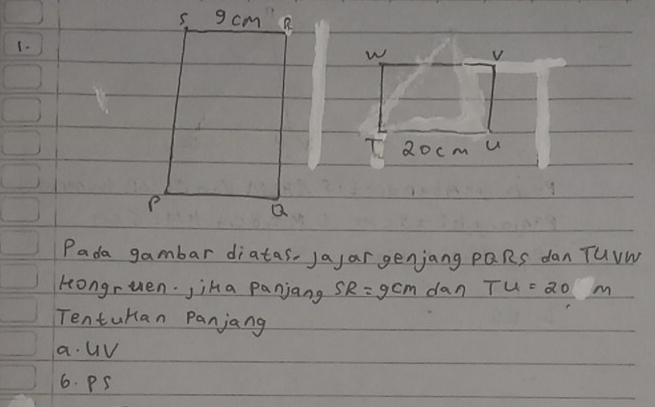 S 9 cm R
1.
W V
T 20 cm U
P Q
Pada gambar diatas, jajar genjang PQRS dan TUVW
Kongruen. jika panjang SR = 9cm dan TU = 20 m
Tentukan Panjang
a. UV
b. PS